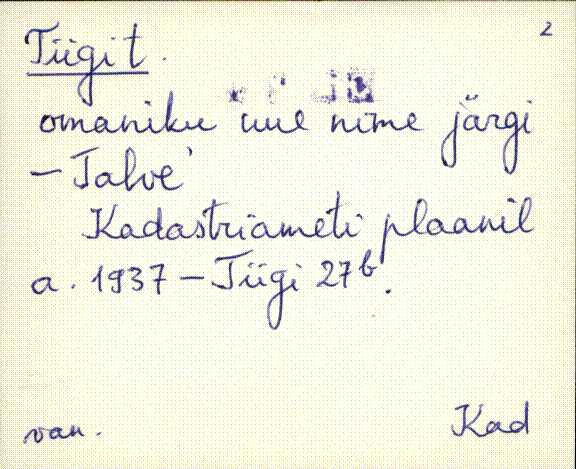 2
Tiigi t.
omaniku uue nime järgi
– Talve'
Kadastriameti plaanil
a. 1937 – Tiigi 27b.
van.
Kad